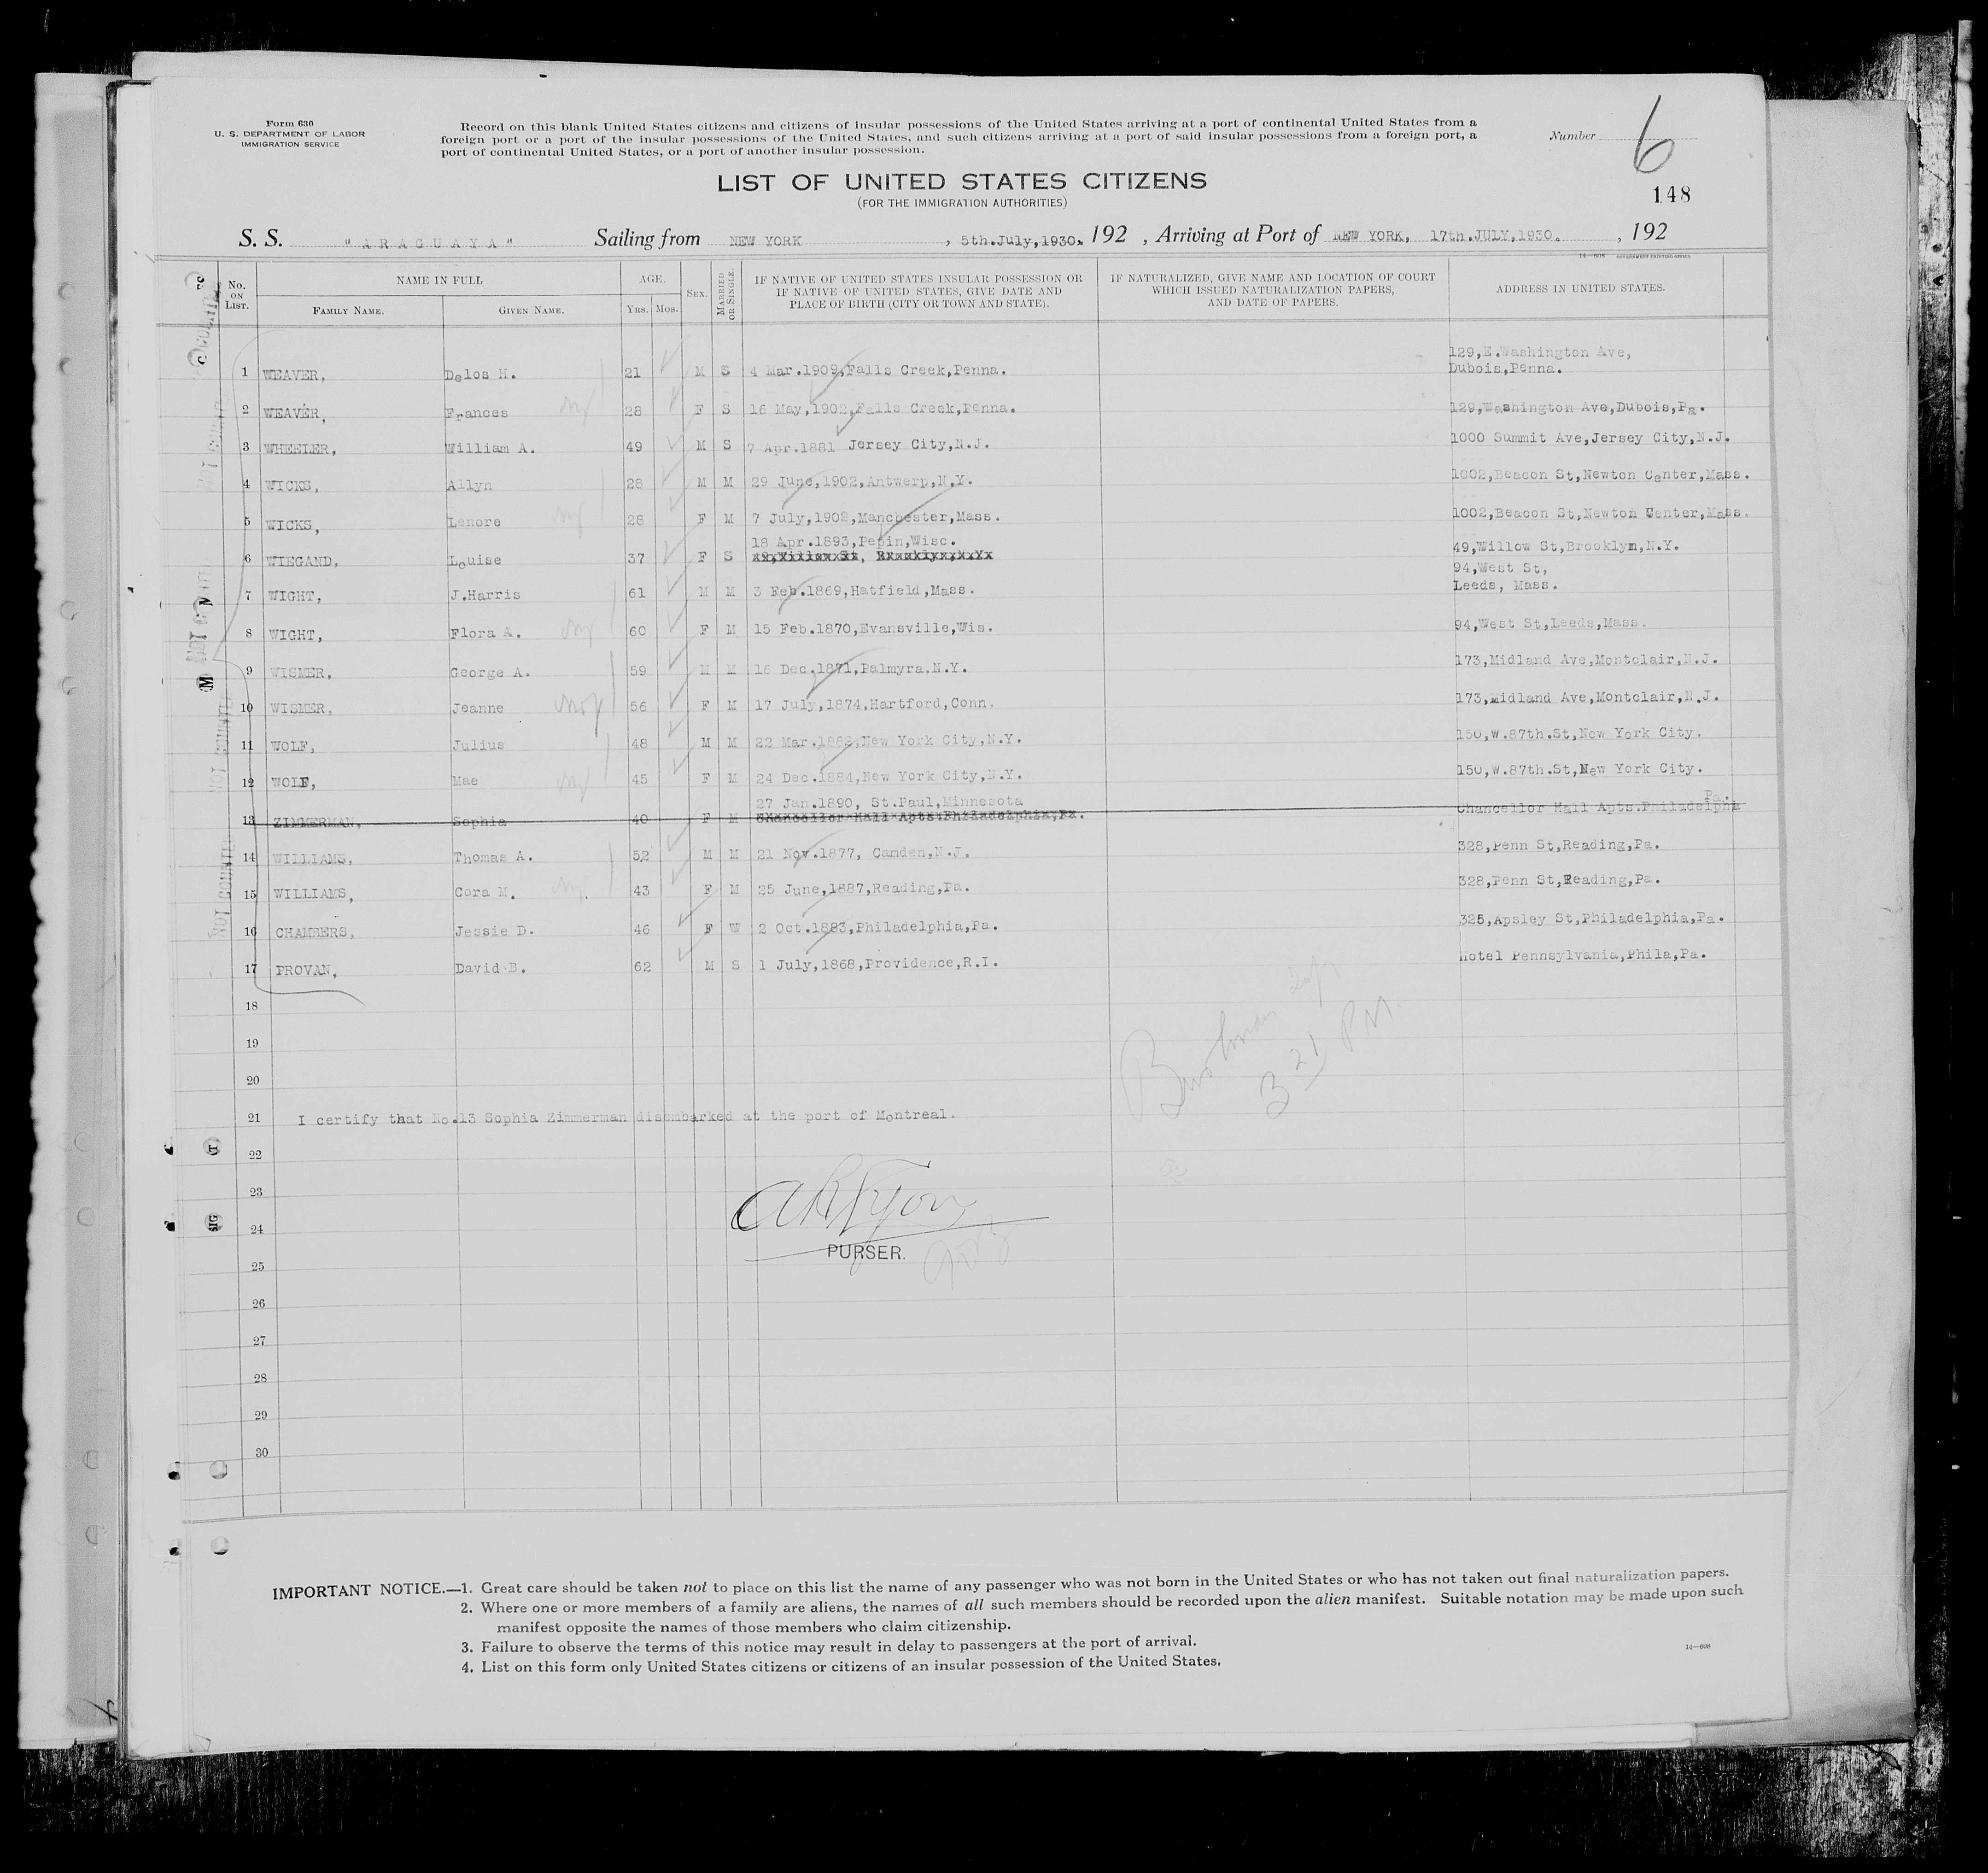 Form 630
U. S. DEPARTMENT OF LABOR
IMMIGRATION SERVICE
Record on this blank United States citizens and citizens of insular possessions of the United States arriving at a port of continental United States from a
foreign port or a port of the insular possessions of the United States, and such citizens arriving at a port of said insular possessions from a foreign port, a
port of continental United States, or a port of another insular possession.
Number 6
148
LIST OF UNITED STATES CITIZENS
(FOR THE IMMIGRATION AUTHORITIES)
S. S. "ARAGUAYA" Sailing from NEW YORK , 5th.July,1930. 192 , Arriving at Port of NEW YORK, 17th.JULY,1930. , 192
14—608 GOVERNMENT PRINTING OFFICE
No. ON LIST. NAME IN FULL FAMILY NAME. GIVEN NAME. AGE. YRS. MOS. SEX. MARRIED OR SINGLE. IF NATIVE OF UNITED STATES INSULAR POSSESSION OR IF NATIVE OF UNITED STATES, GIVE DATE AND PLACE OF BIRTH (CITY OR TOWN AND STATE). IF NATURALIZED, GIVE NAME AND LOCATION OF COURT WHICH ISSUED NATURALIZATION PAPERS, AND DATE OF PAPERS. ADDRESS IN UNITED STATES.
129,E.Washington Ave,
1 WEAVER, Delos H. 21 M S 4 Mar.1909,Falls Creek,Penna. Dubois,Penna.
2 WEAVER, Frances 28 F S 16 May,1902,Falls Creek,Penna. 129,Washington Ave,Dubois,Pa.
3 WHEELER, William A. 49 M S 7 Apr.1881 Jersey City,N.J. 1000 Summit Ave,Jersey City,N.J.
4 WICKS, Allyn 28 M M 29 June,1902,Antwerp,N.Y. 1002,Beacon St,Newton Center,Mass.
5 WICKS, Lenore 28 F M 7 July,1902,Manchester,Mass. 1002,Beacon St,Newton Center,Mass.
18 Apr.1893,Pepin,Wisc.
6 WIEGAND, Louise 37 F S 49,Willow St,Brooklyn,N.Y.
94,West St,
7 WIGHT, J.Harris 61 M M 3 Feb.1869,Hatfield,Mass. Leeds, Mass.
8 WIGHT, Flora A. 60 F M 15 Feb.1870,Evansville,Wis. 94,West St,Leeds,Mass.
9 WISMER, George A. 59 M M 16 Dec.1871,Palmyra,N.Y. 173,Midland Ave,Montclair,N.J.
10 WISMER, Jeanne 56 F M 17 July,1874,Hartford,Conn. 173,Midland Ave,Montclair,N.J.
11 WOLF, Julius 48 M M 22 Mar.1882,New York City,N.Y. 150,W.87th.St,New York City.
12 WOLF, Mae 45 F M 24 Dec.1884,New York City,N.Y. 150,W.87th.St,New York City.
27 Jan.1890, St.Paul,Minnesota Pa.
13 ZIMMERMAN, Sophia 40 F M Chancellor Hall Apts.Philadelphia,Pa. Chancellor Hall Apts.Philadelphia
14 WILLIAMS, Thomas A. 52 M M 21 Nov.1877, Camden,N.J. 328,Penn St,Reading,Pa.
15 WILLIAMS, Cora M. 43 F M 25 June,1887,Reading,Pa. 328,Penn St,Reading,Pa.
16 CHAMBERS, Jessie D. 46 F W 2 Oct.1883,Philadelphia,Pa. 325,Apsley St,Philadelphia,Pa.
17 PROVAN, David B. 62 M S 1 July,1868,Providence,R.I. Hotel Pennsylvania,Phila,Pa.
18
19
20
3 21 PM.
21 I certify that No.13 Sophia Zimmerman disembarked at the port of Montreal.
22
23
24
PURSER.
25
26
27
28
29
30
IMPORTANT NOTICE.—1. Great care should be taken not to place on this list the name of any passenger who was not born in the United States or who has not taken out final naturalization papers.
2. Where one or more members of a family are aliens, the names of all such members should be recorded upon the alien manifest. Suitable notation may be made upon such
manifest opposite the names of those members who claim citizenship.
3. Failure to observe the terms of this notice may result in delay to passengers at the port of arrival.
4. List on this form only United States citizens or citizens of an insular possession of the United States.
14—608